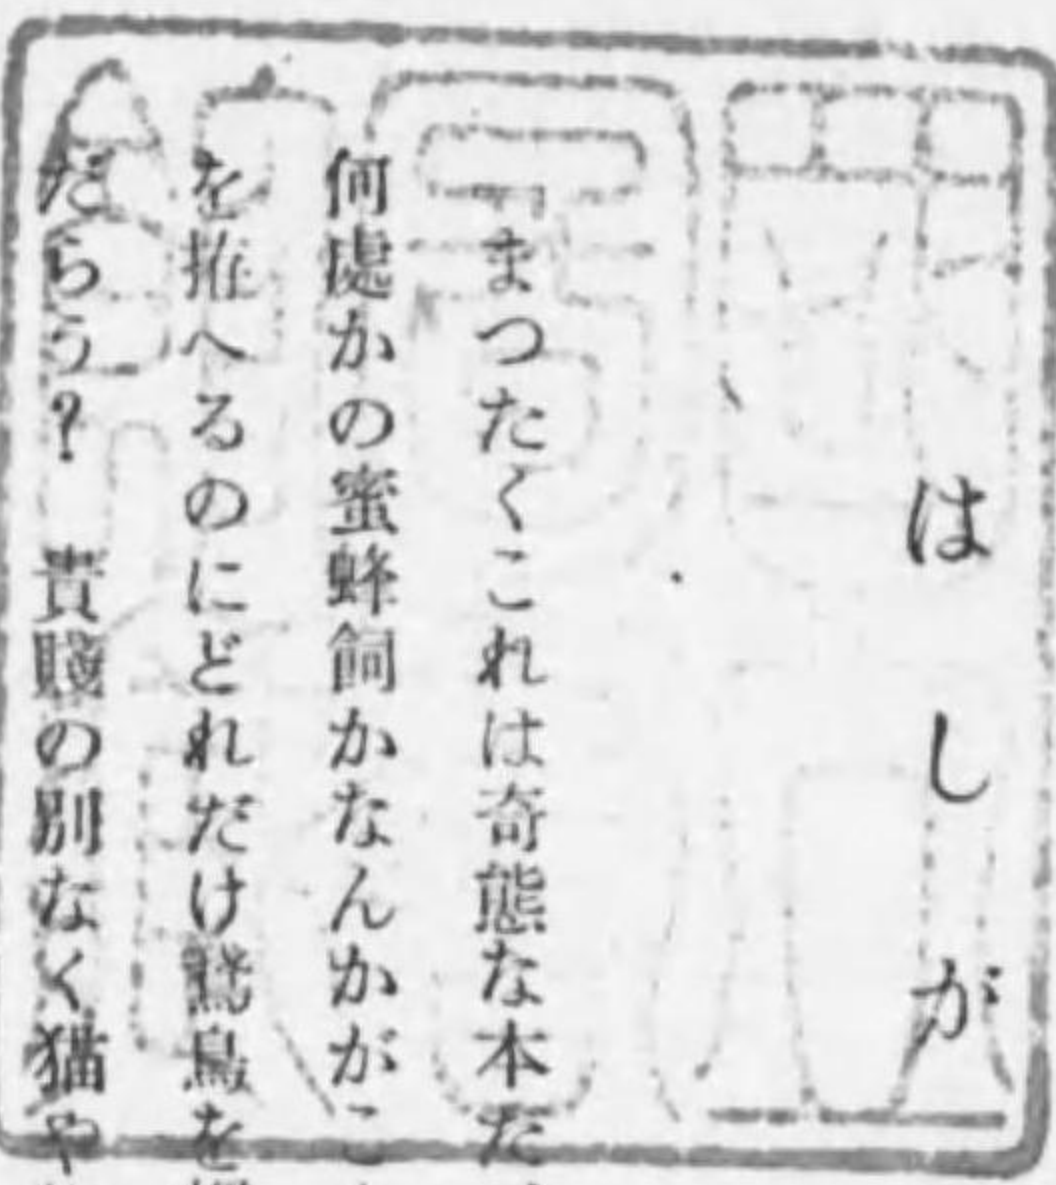 はしが
「まつたくこれは奇態な本だ
何處かの蜜蜂飼かなんかがこ
を拵へるのにどれだけ鵞鳥を
だらう? 貴賤の別なく猫や